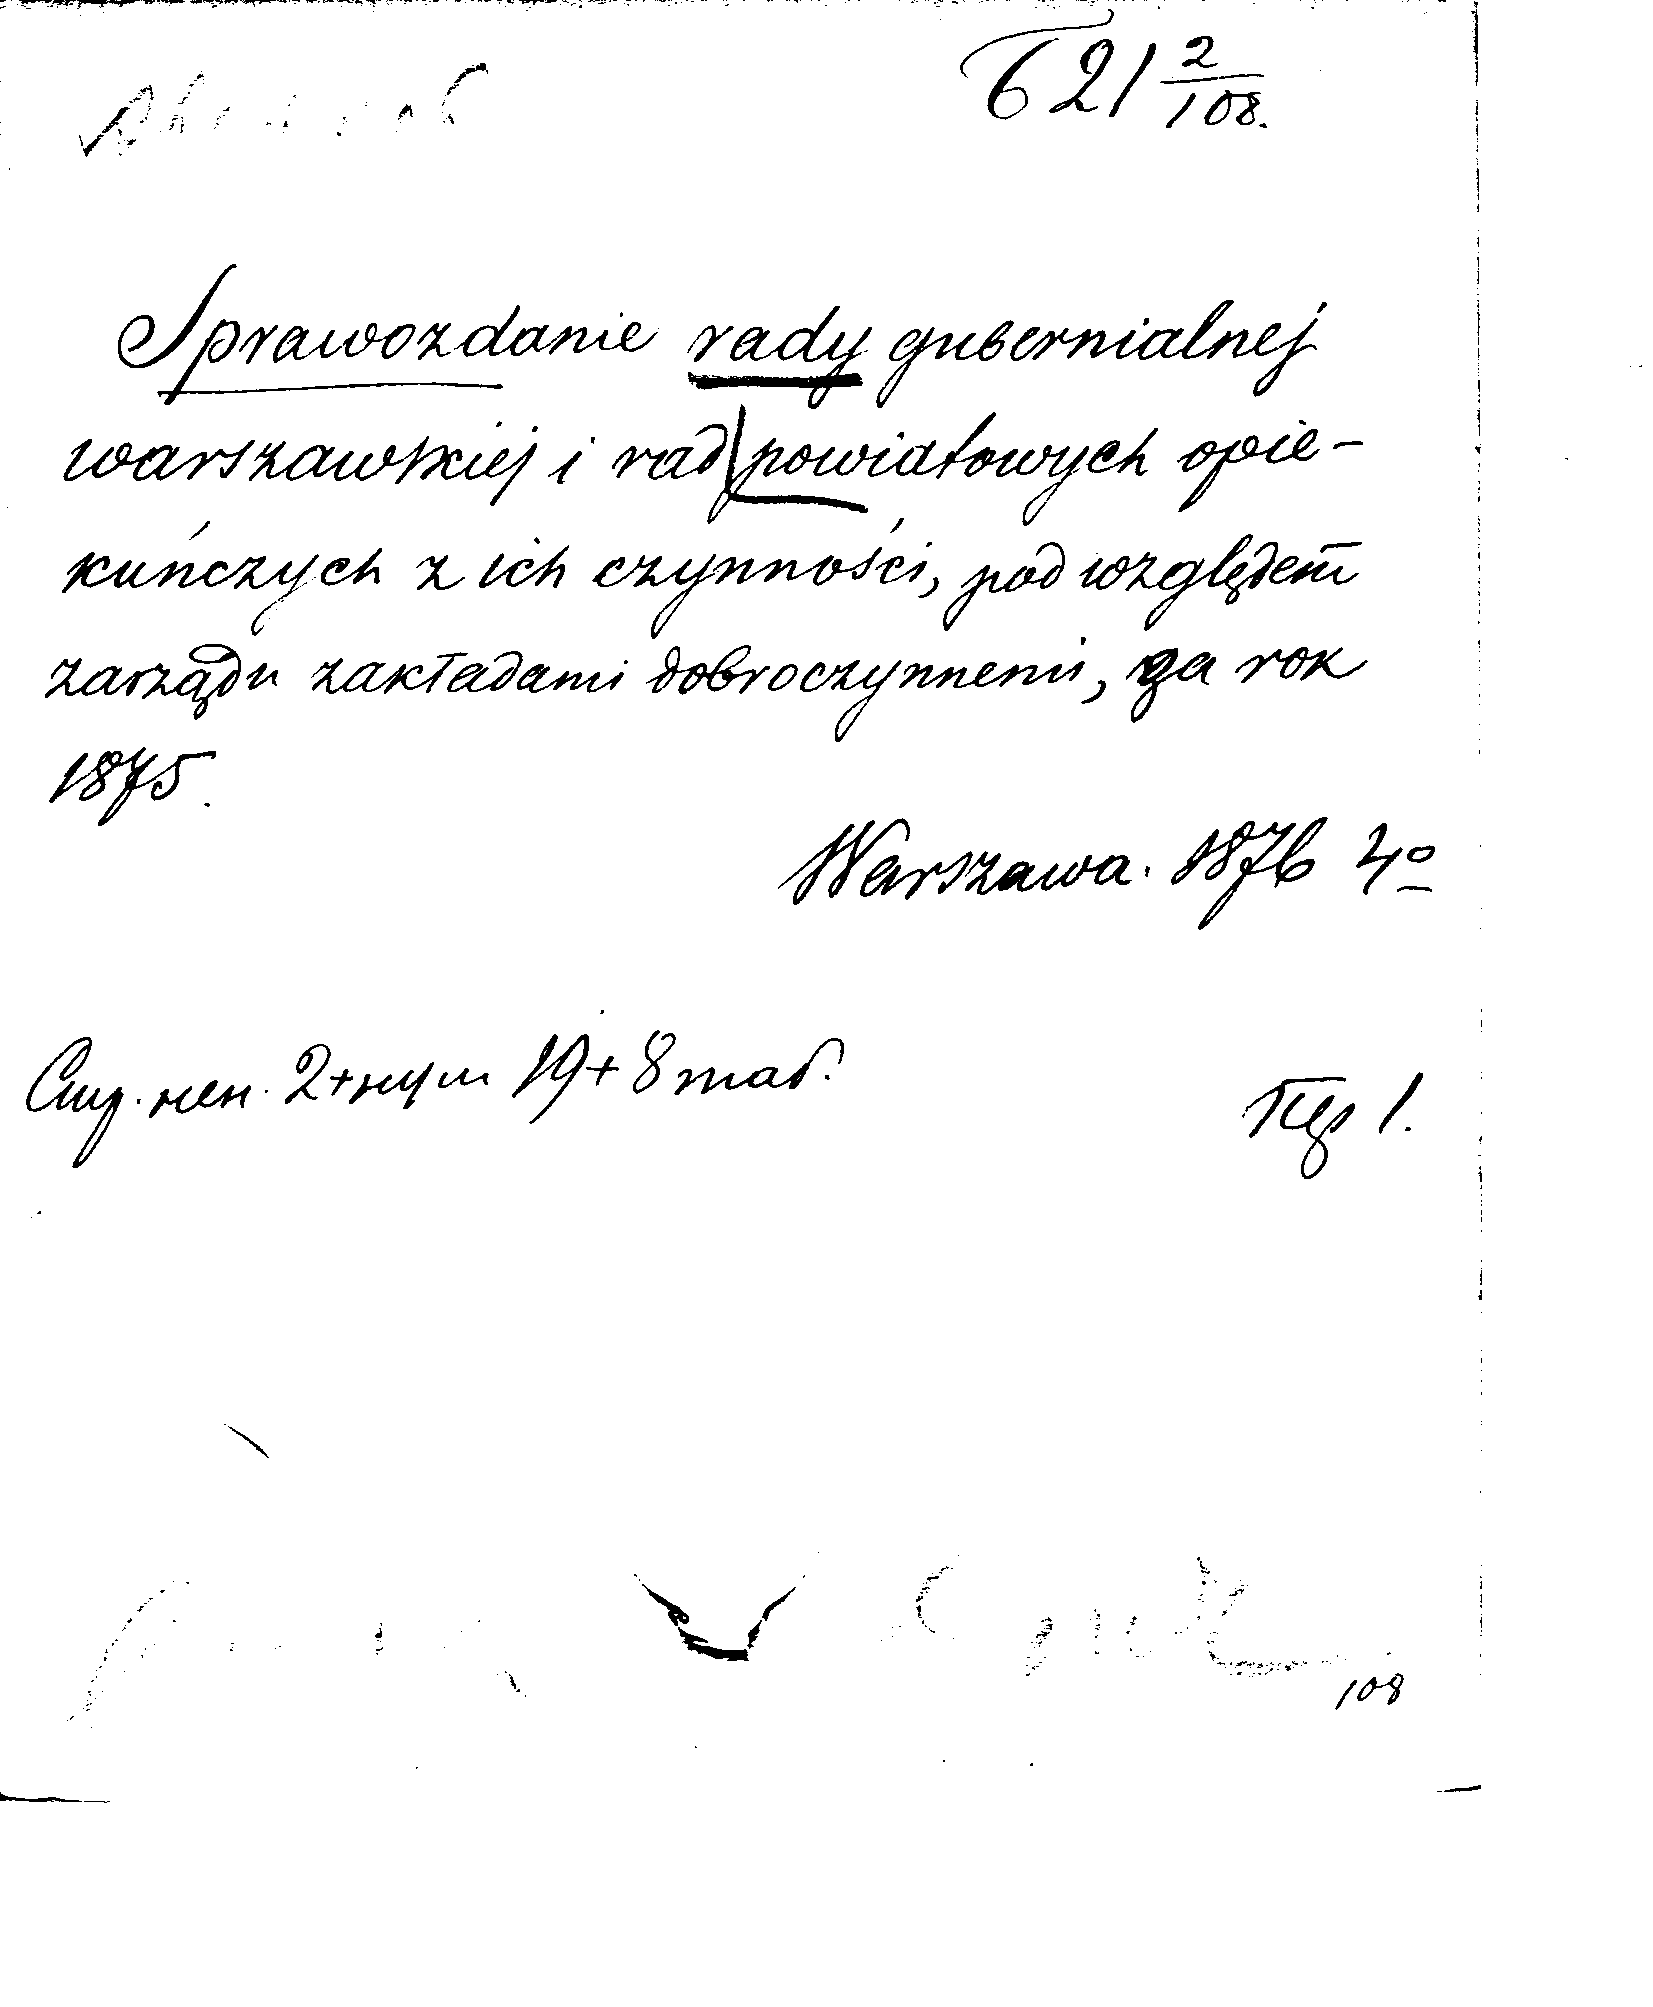 Б 21 2/108.
Sprawozdanie rady gubernialnej
warszawskiej i rad powiatowych opie-
kuńczych z ich czynności, pod względem
zarządu zakładami dobroczynnemi, za rok
1875.
Warszawa. 1876 4º
Стр. нен. 2+нум 19+8 таб.
1.
108